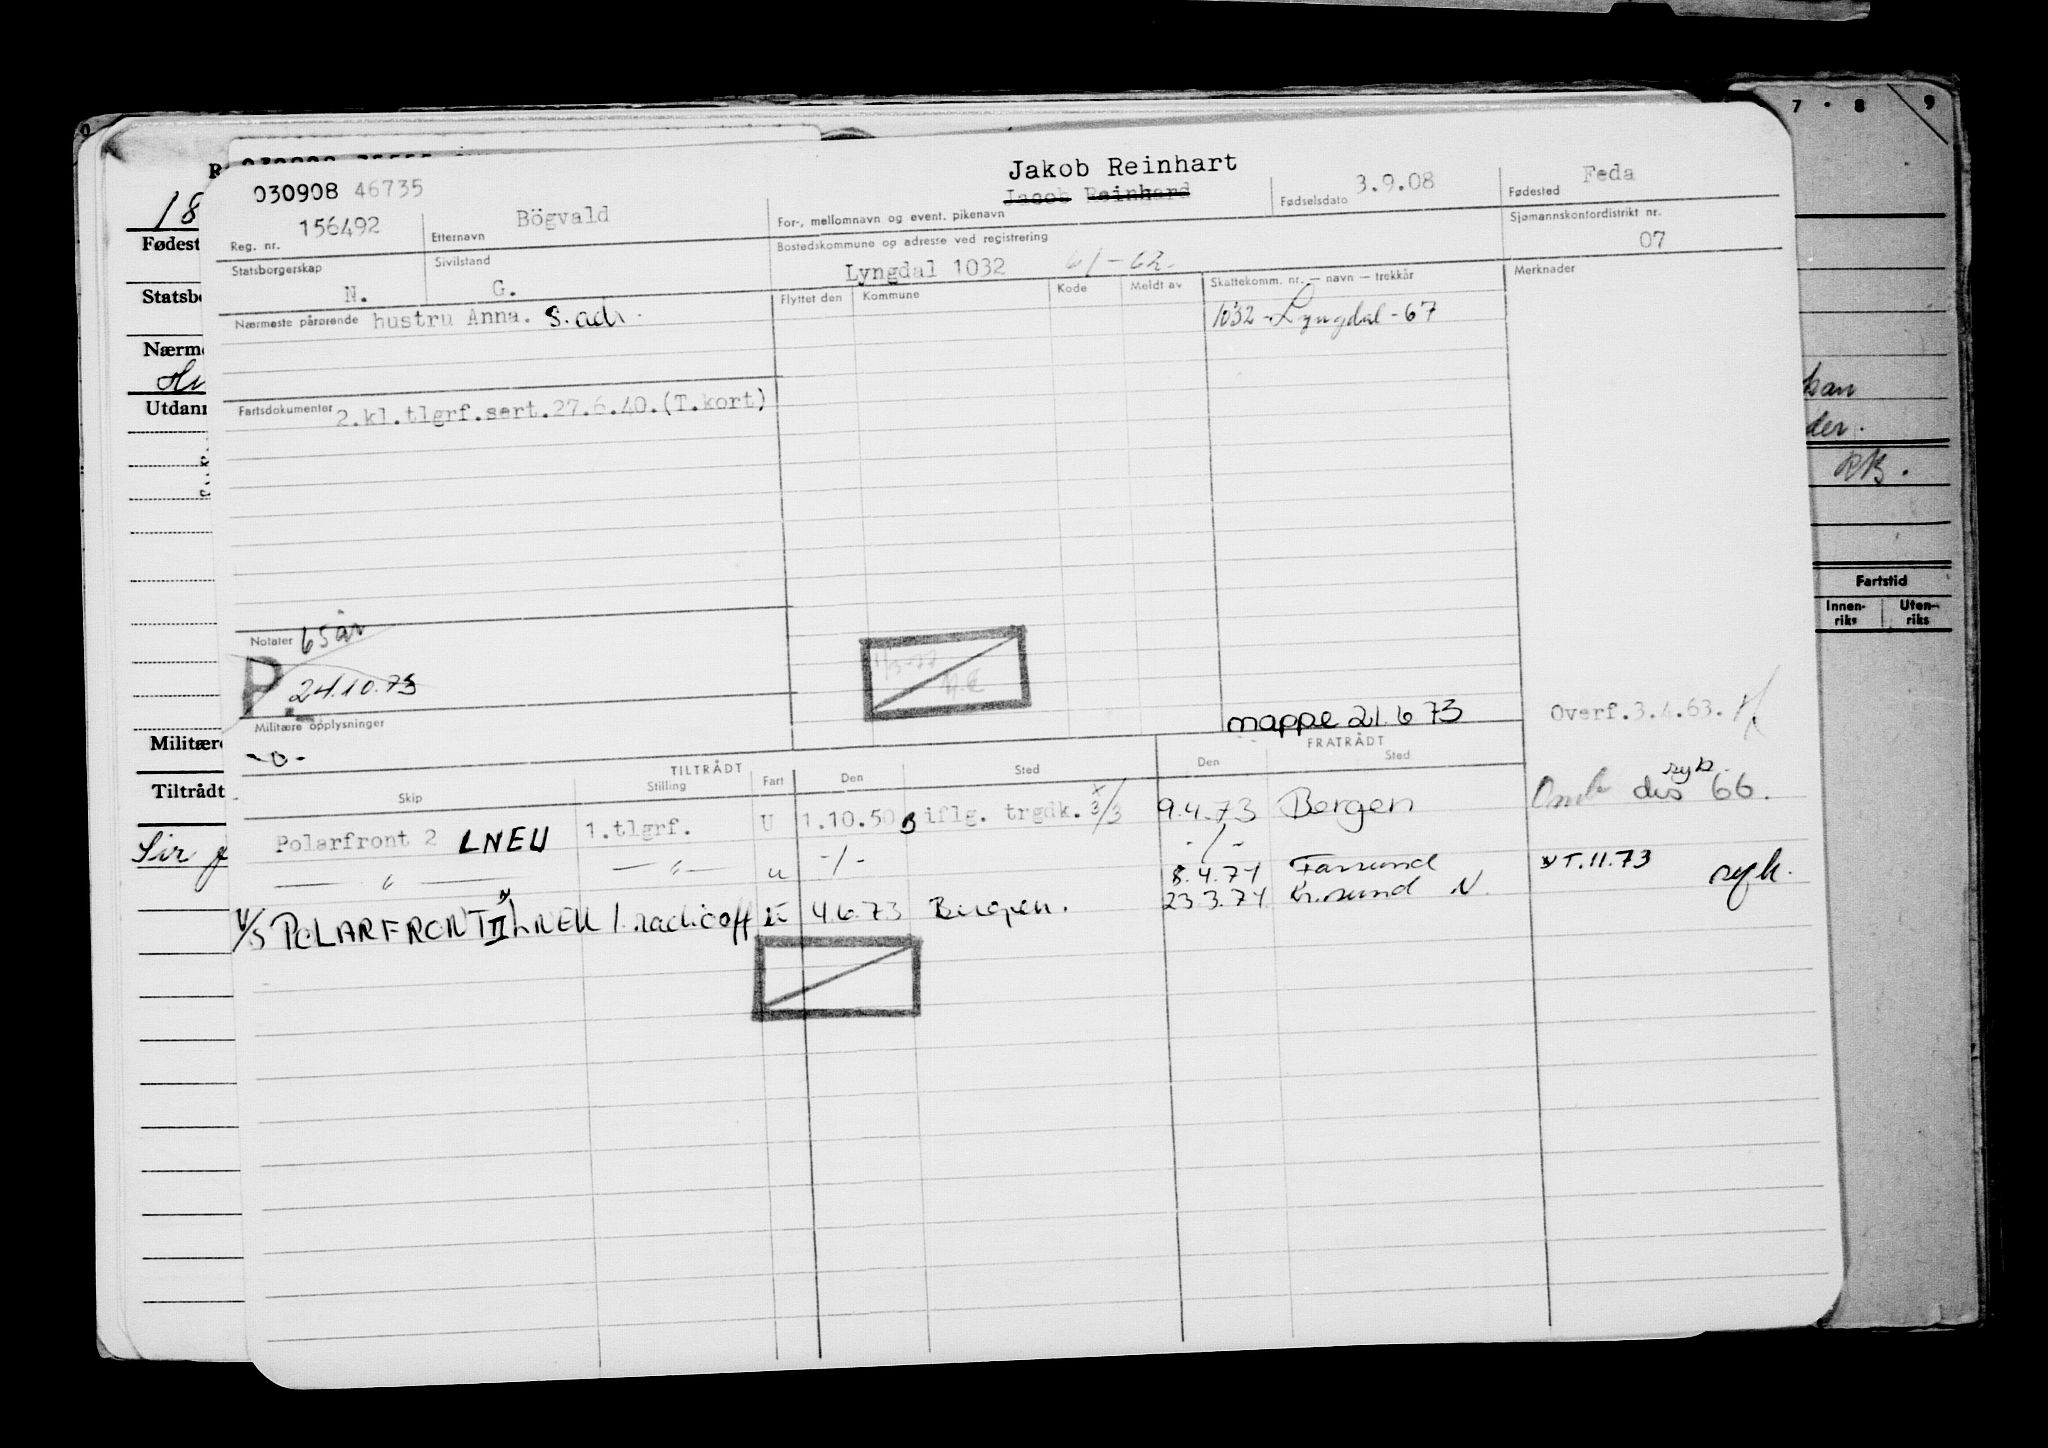 7 · 8 9
Jakob Reinhart
030908 46735
Jacob Reinhard
3.9.08
Feda
18
156492
Bögvald
Reg. nr.
Etternavn
For-, mellomnavn og event. pikenavn
Fødselsdato
Fødested
Fødest
Statsborgerskap
Sivilstand
Bostedskommune og adresse ved registrering
Sjømannskontordistrikt nr.
07
N.
G.
Lyngdal 1032 61-62
Statsbo
Nærmeste pårørende hustru Anna. S. adr.
Flyttet den
Kommune
Kode
Meldt av
Skattekomm. nr. — navn — trekkår
Merknader
1032 - Lyngdal - 67
Nærme
Utdann
Fartsdokumenter 2.kl.tlgrf.sert.27.6.40.(T.kort)
der.
Fartstid
Innen-
riks
Uten-
riks
Notater 65 år
P. 24.10.73
Militære opplysninger
-o-
mappe 21.6 73
Overf.3.4.63.
Militære
TILTRÅDT
FRATRÅDT
Tiltrådt
Skip
Stilling
Fart
Den
Sted
Den
Sted
Polarfront 2 LNEU 1.tlgrf. U 1.10.50 iflg. trgdk. 3/3 9.4.73 Bergen
syk.
dis 66.
— " — — " — u -/- -/-
8.4.74 Farsund
T.11.73 syk.
M/S POLARFRONT II LNEU 1. radiooff 4.6.73 Bergen. 23.3.74 Kr.sund N.